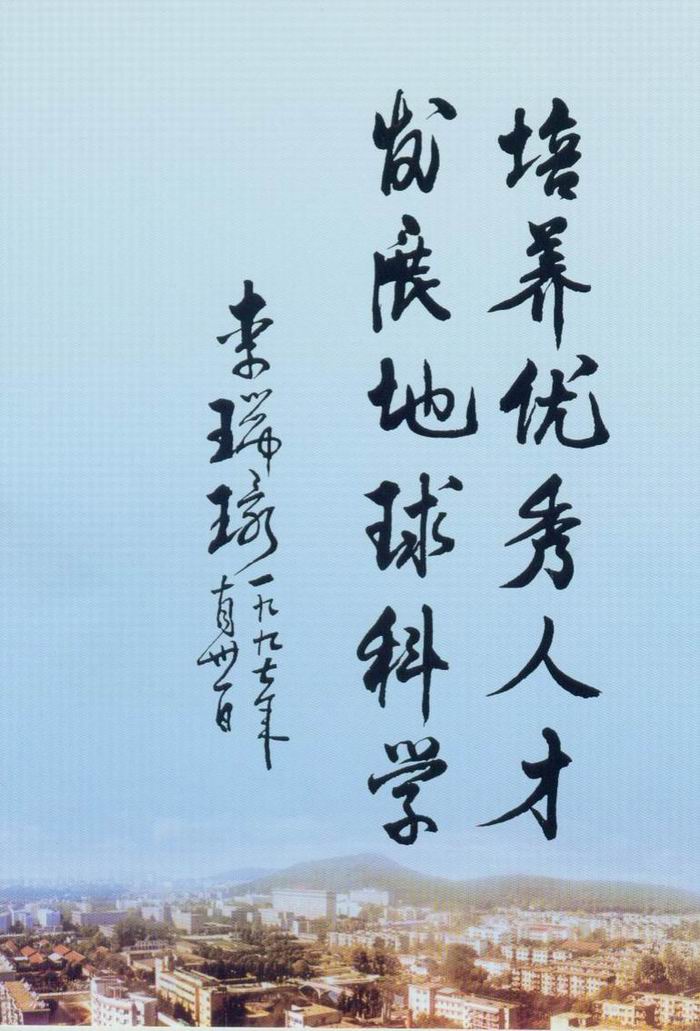 培养优秀人才
发展地球科学
李瑞环
一九九七年
十月卅一日